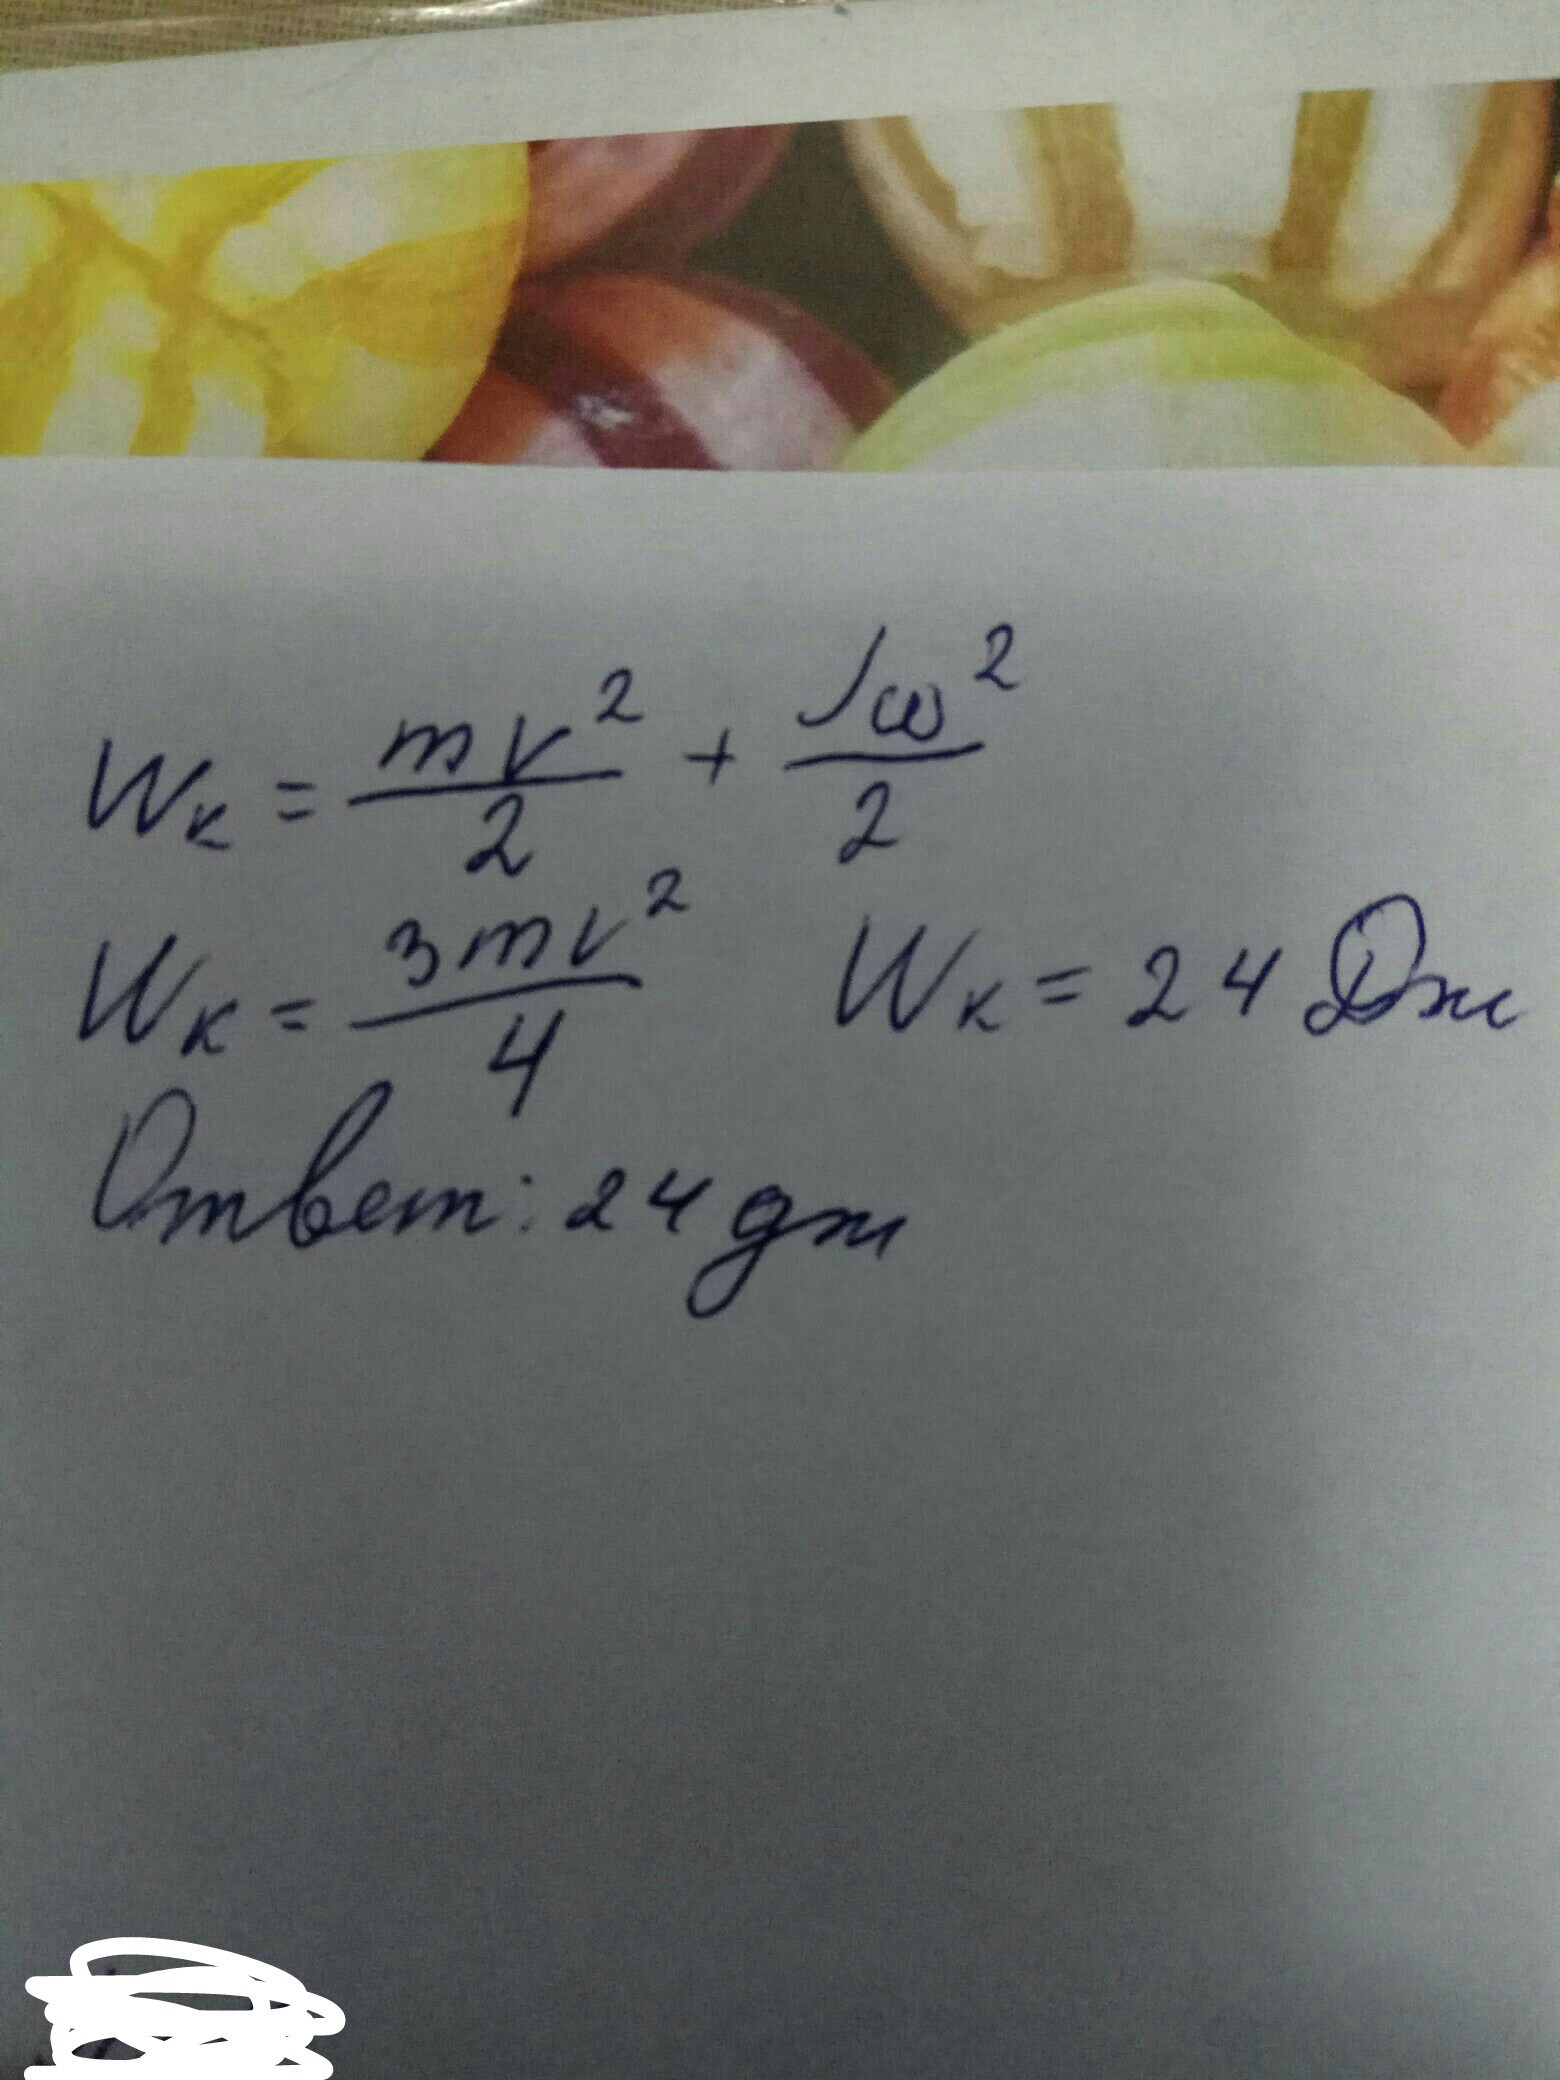 Wк = mv²/2 + Jω²/2
Wк = 3mv²/4 Wк = 24 Дж
Ответ: 24 дж